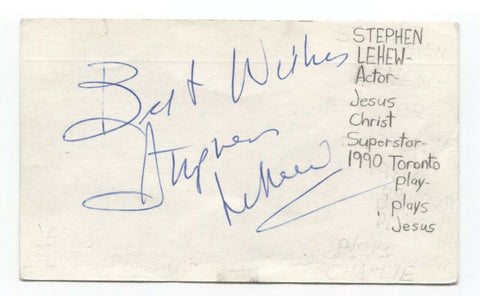 Best Wishes
Stephen
Lehew
STEPHEN
LEHEW-
Actor-
Jesus
Christ
Superstar-
1990 Toronto
play-
plays
Jesus
plays
CHARLIE